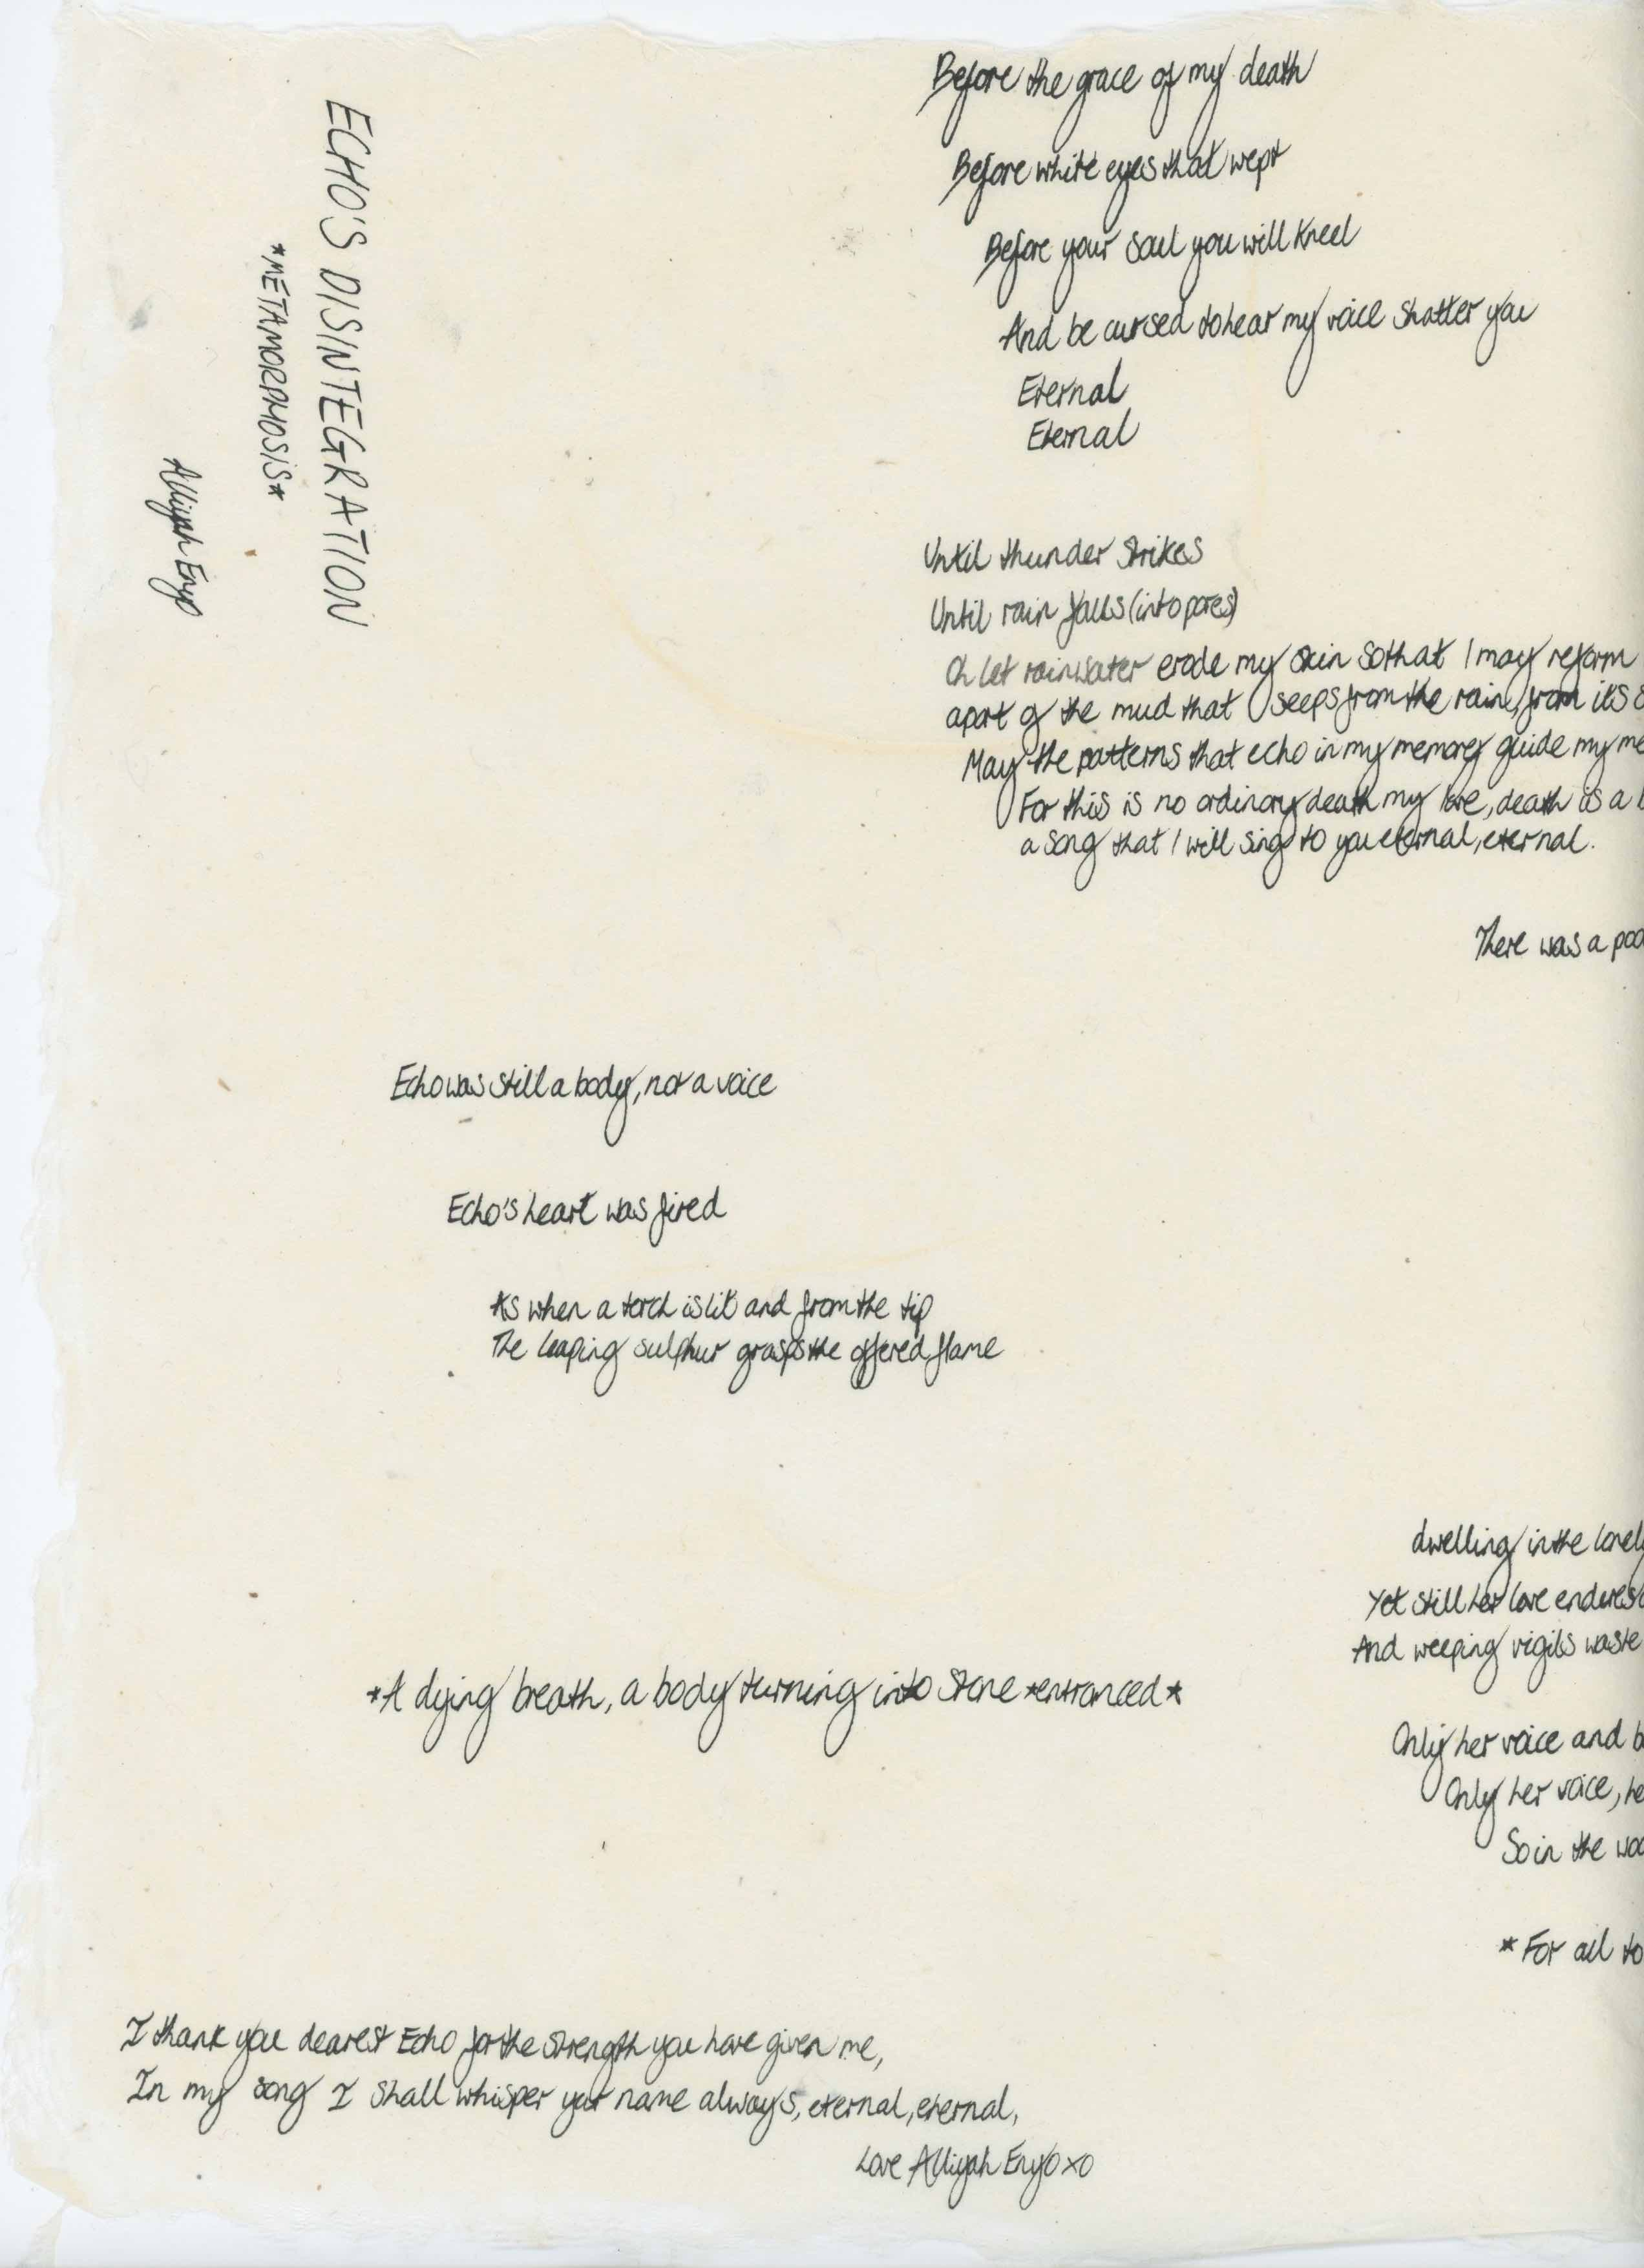 ECHO'S DISINTEGRATION
*METAMORPHOSIS*
Alliyah Enyo
Before the grace of my death
Before white eyes that wept
Before your soul you will kneel
And be cursed to hear my voice shatter you
Eternal
Eternal
Until thunder strikes
Until rain falls (into pores)
Oh let rainwater erode my skin so that I may reform
apart of the mud that seeps from the rain, from its
May the patterns that echo in my memory guide my
For this is no ordinary death my love, death is a
a song that I will sing to you eternal, eternal.
There was a
Echo was still a body, not a voice
Echo's heart was fired
As when a torch is lit and from the tip
The leaping sulphur grasps the offered flame
dwelling in the
Yet still her love endures
And weeping vigils waste
*A dying breath, a body turning into stone *entranced*
Only her voice and
Only her voice,
So in the
*For all to
I thank you dearest Echo for the strength you have given me,
In my song I shall whisper your name always, eternal, eternal,
Love Alliyah Enyo xo